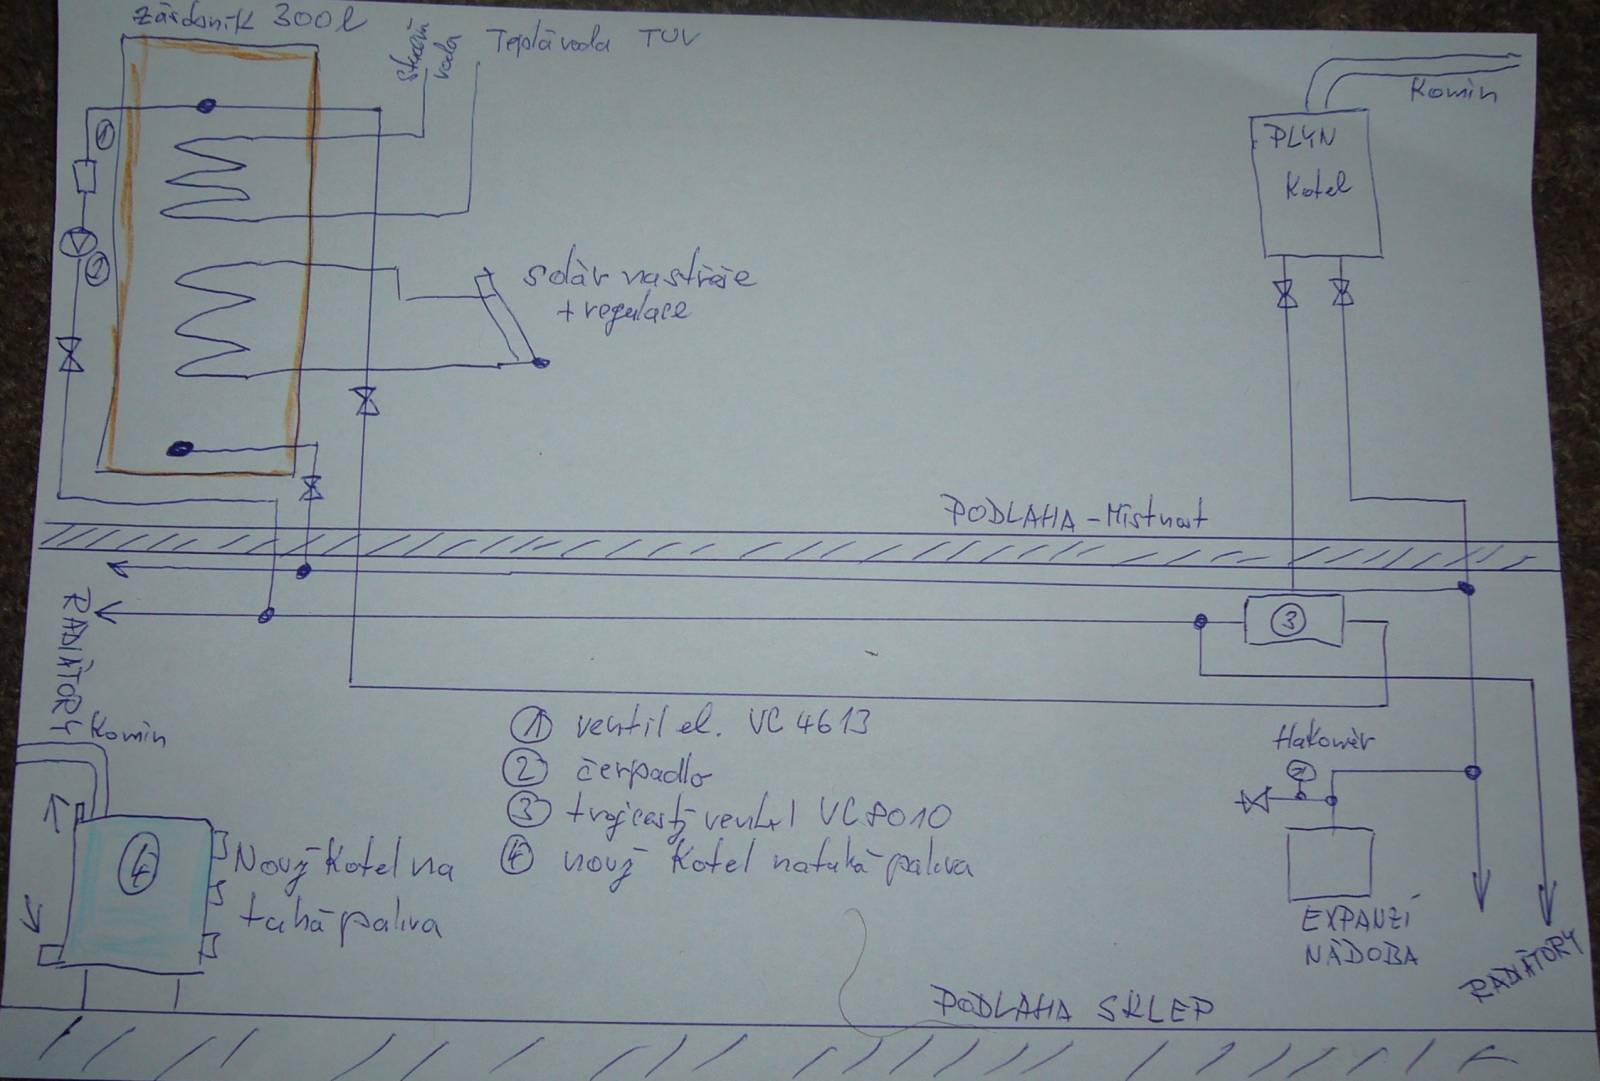 zásobník 300l
studená voda
Teplá voda TUV
Komín
PLYN
Kotel
1
2
solár na střeše
+ regulace
PODLAHA - Místnost
RADIÁTORY
3
Komín
1 ventil el. VC 4613
2 čerpadlo
3 trojcestý ventil VC 8010
4 nový Kotel na tuhá paliva
Hakoměr
4
Nový Kotel na
tuhá paliva
EXPANZÍ
NÁDOBA
RADIÁTORY
PODLAHA SKLEP